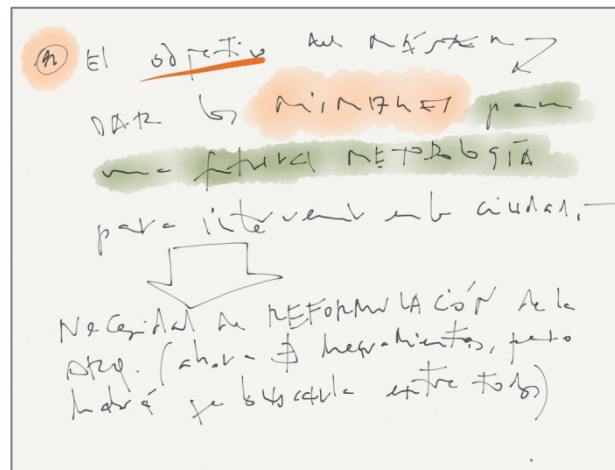 (n) El objetivo del MÁSTER
DAR los MIMBRES para
una futura METODOLOGÍA
para intervenir en la ciudad.
Necesidad de REFORMULACIÓN de la
ARQ. (ahora ∄ herramientas, pero
habrá que buscarla entre todos)